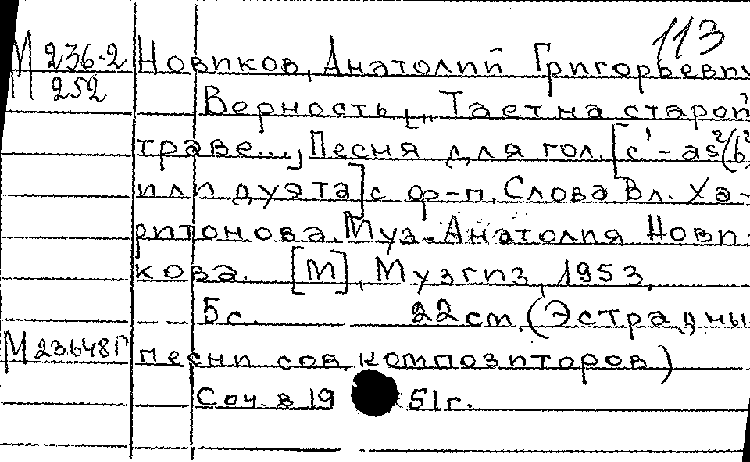 113
М 236-2 Новиков, Анатолий Григорьевич
М 252
Верность [„Тает на старой
траве...„] Песня для гол. [c¹-as²(b²)
или дуэта] с ф-п. Слова Вл. Ха-
ритонова. Муз. Анатолия Нови-
кова. [М], Музгиз, 1953.
5 с. 22 см. (Эстрадны
М 23648 П песни сов. композиторов)
Соч. в 1951 г.